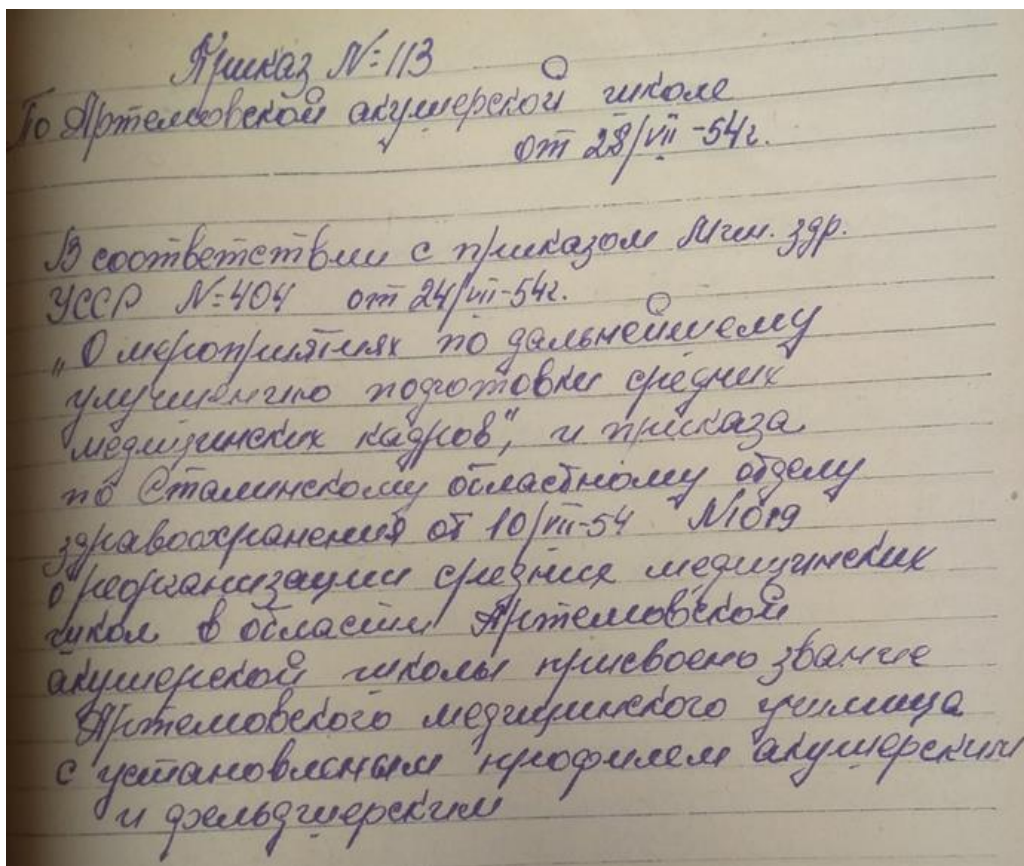 Приказ №113
По Артемовской акушерской школе
от 28/VII-54г.
В соответствии с приказом Мин. здр.
УССР №404 от 24/VII-54г.
„О мероприятиях по дальнейшему
улучшению подготовки средних
медицинских кадров", и приказа
по Сталинскому областному отделу
здравоохранения от 10/VII-54 №1019
о реорганизации средних медицинских
школ в области Артемовской
акушерской школы присвоено звание
Артемовского медицинского училища
с установленым профилем акушерским
и фельдшерским